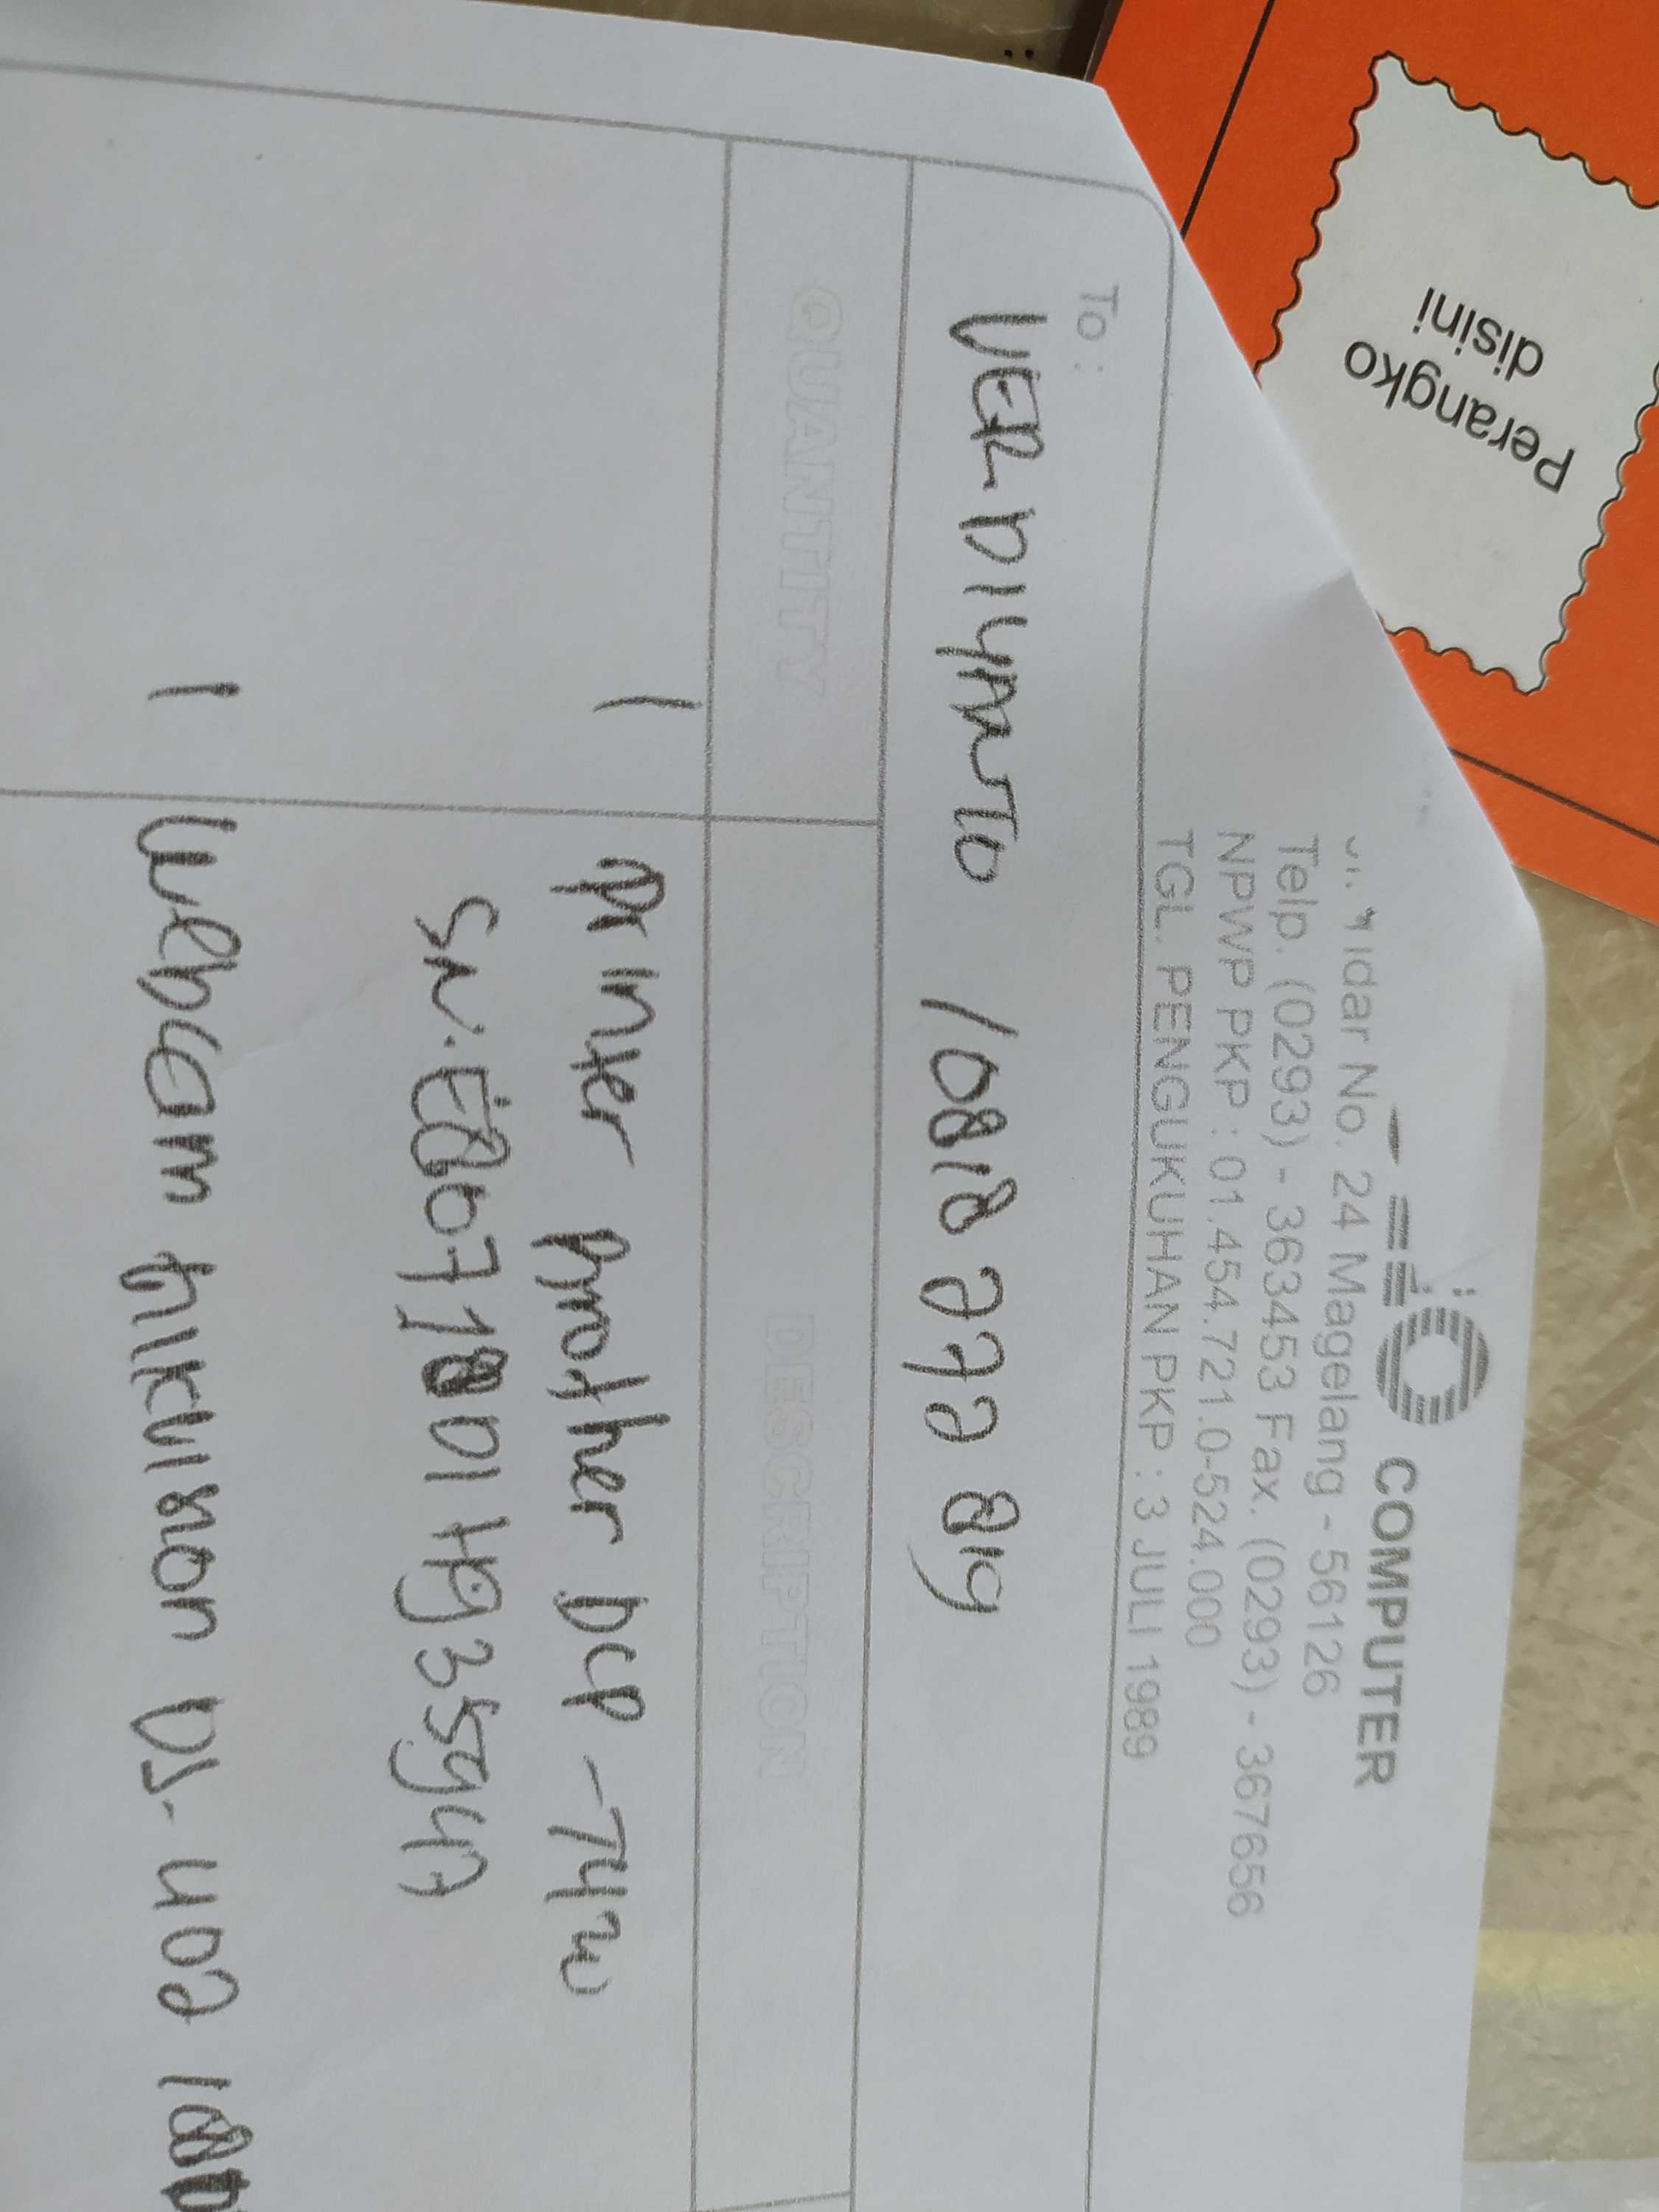 COMPUTER
idar No. 24 Magelang - 56126
Telp. (0293) - 363453 Fax. (0293) - 367656
NPWP PKP : 01.454.721.0-524.000
TGL. PENGUKUHAN PKP : 3 JULI 1989
To :
VERDIYANTO / 0818 272 819
QUANTITY DESCRIPTION
1 Printer Brother DCP-T420
1 Webcam Hikvision DS-U02
Perangko
disini